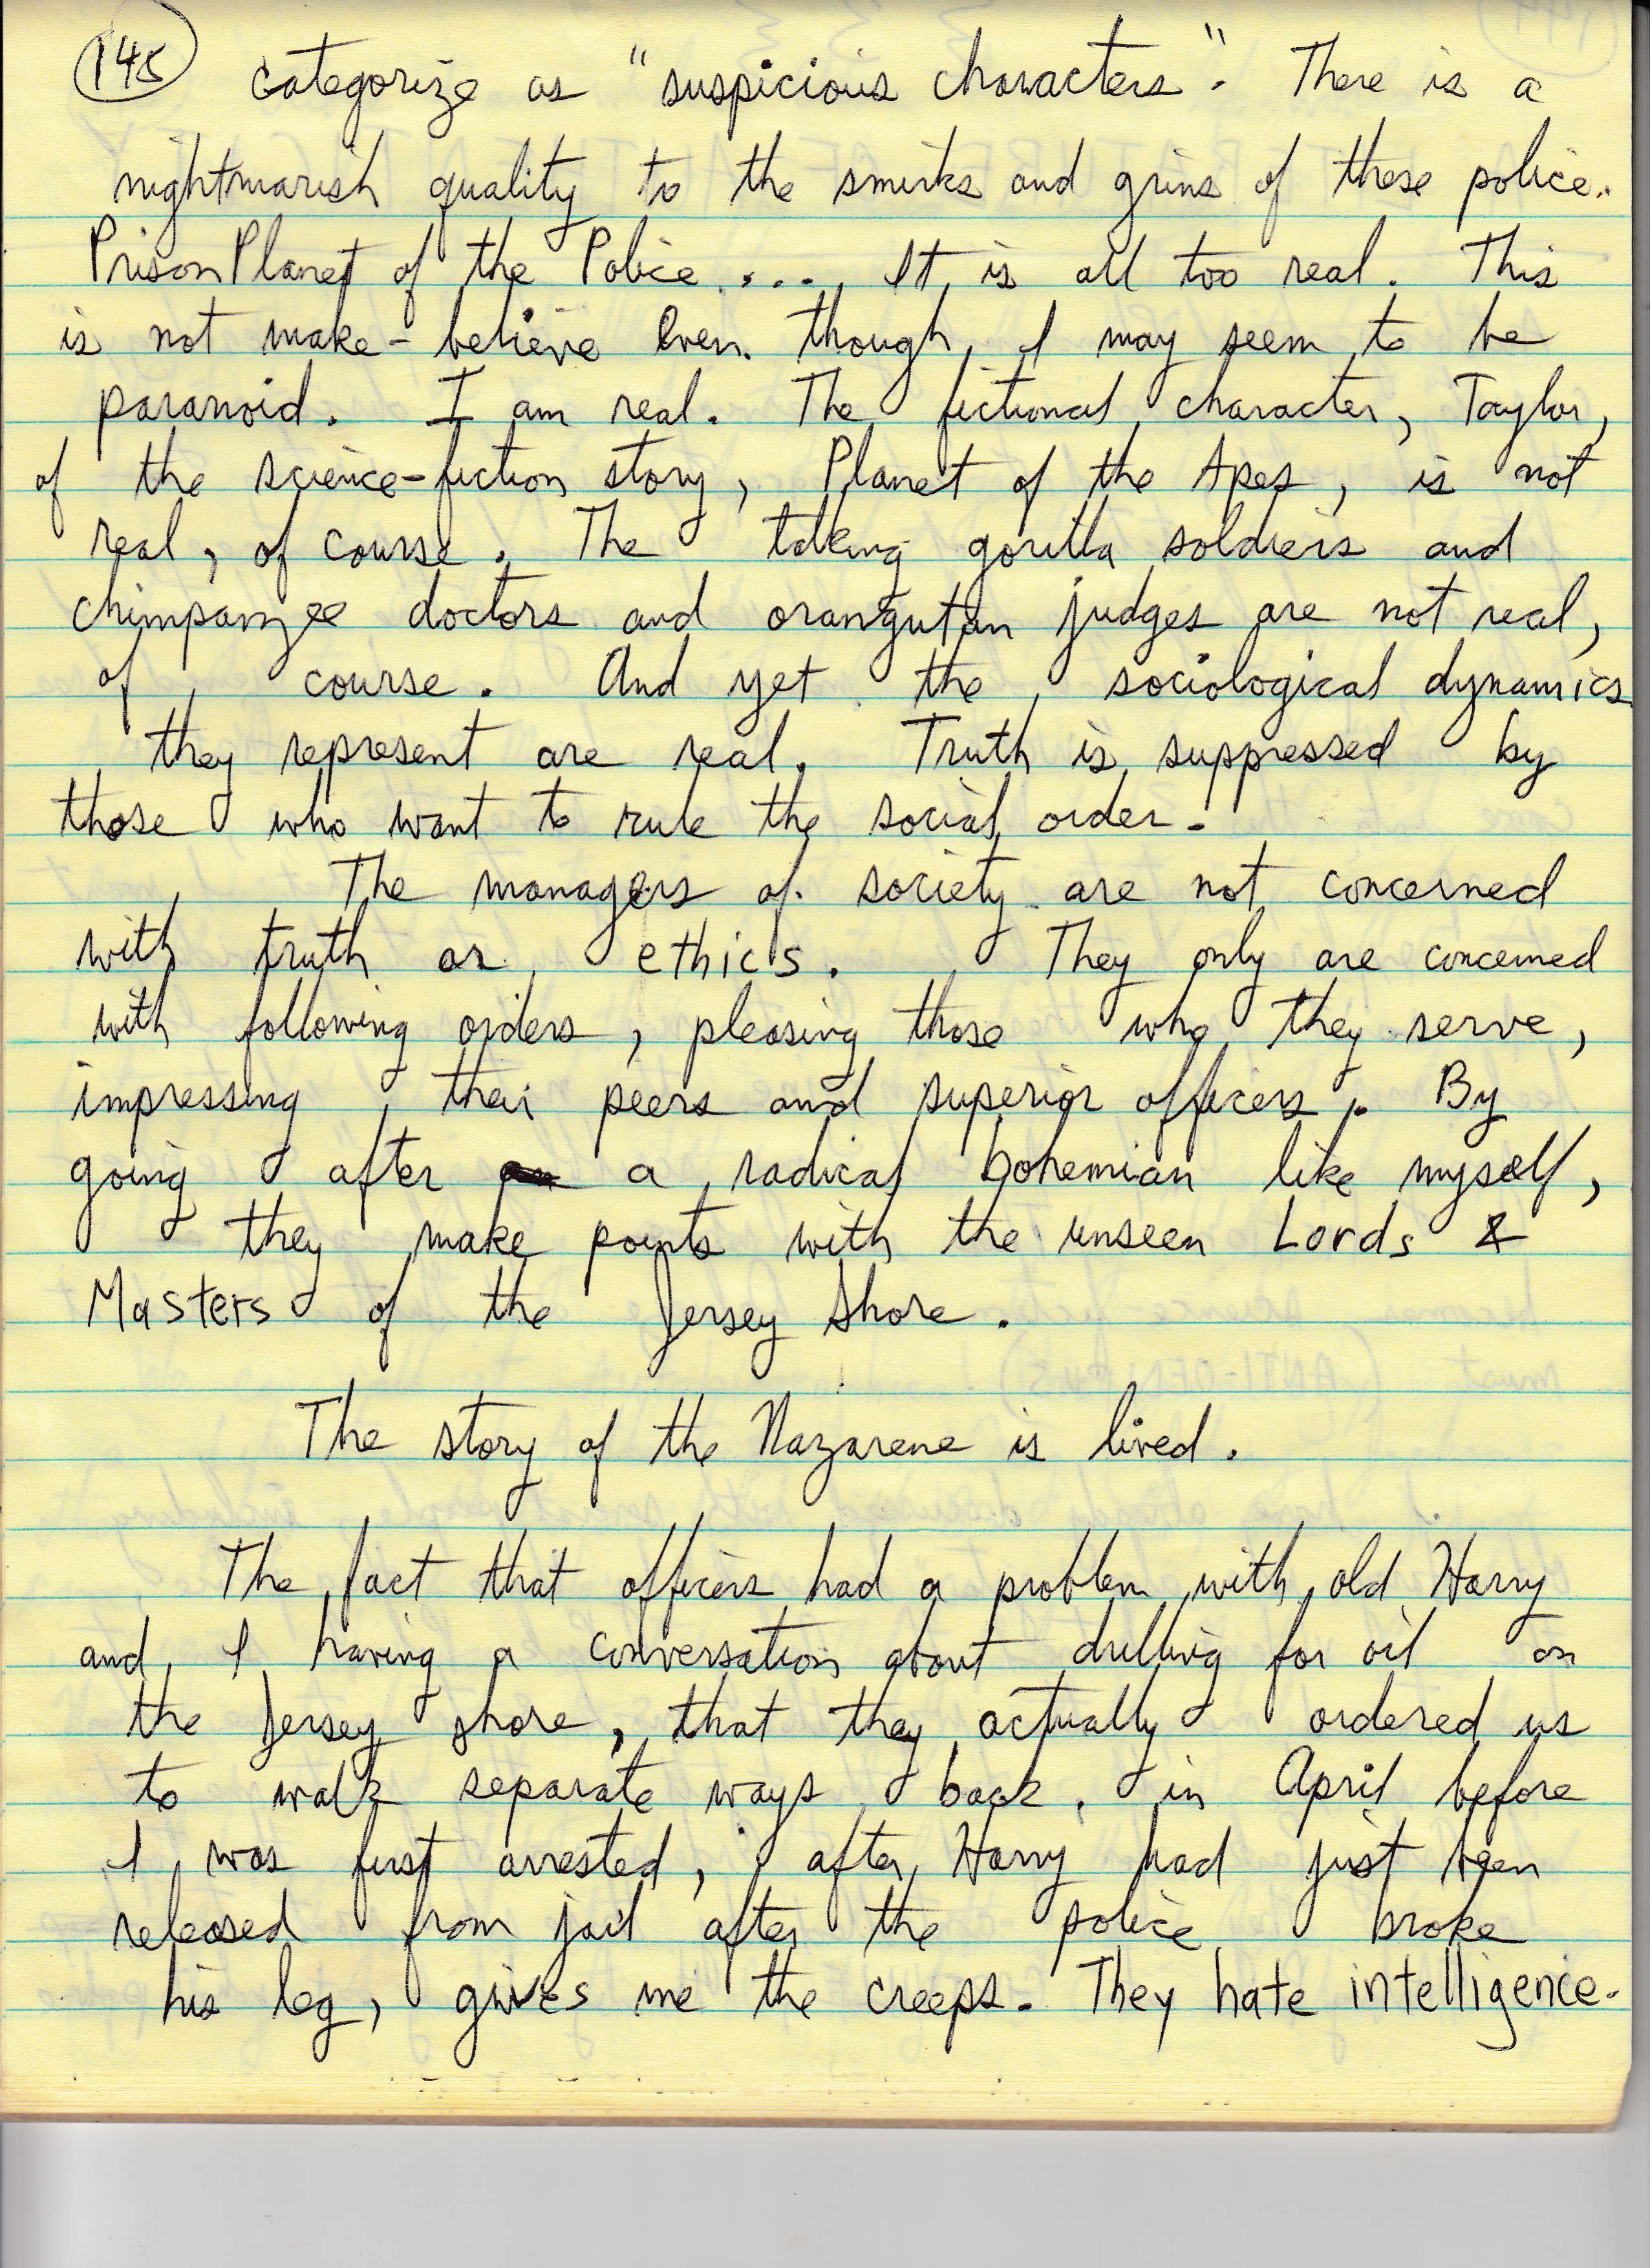 145 categorize as "suspicious characters". There is a
nightmarish quality to the smirks and grins of these police.
Prison Planet of the Police .... It is all too real. This
is not make-believe even though I may seem to be
paranoid. I am real. The fictional character, Taylor,
of the science-fiction story, Planet of the Apes, is not
real, of course. The talking gorilla soldiers and
chimpanzee doctors and orangutan judges are not real,
of course. And yet the sociological dynamics
they represent are real. Truth is suppressed by
those who want to rule the social order.
The managers of society are not concerned
with truth or ethics. They only are concerned
with following orders, pleasing those who they serve,
impressing their peers and superior officers. By
going after a radical bohemian like myself,
they make points with the unseen Lords &
Masters of the Jersey Shore.
The story of the Nazarene is lived.
The fact that officers had a problem with old Harry
and I having a conversation about drilling for oil on
the Jersey shore, that they actually ordered us
to walk separate ways back in April before
I was first arrested, after Harry had just been
released from jail after the police broke
his leg, gives me the creeps. They hate intelligence.